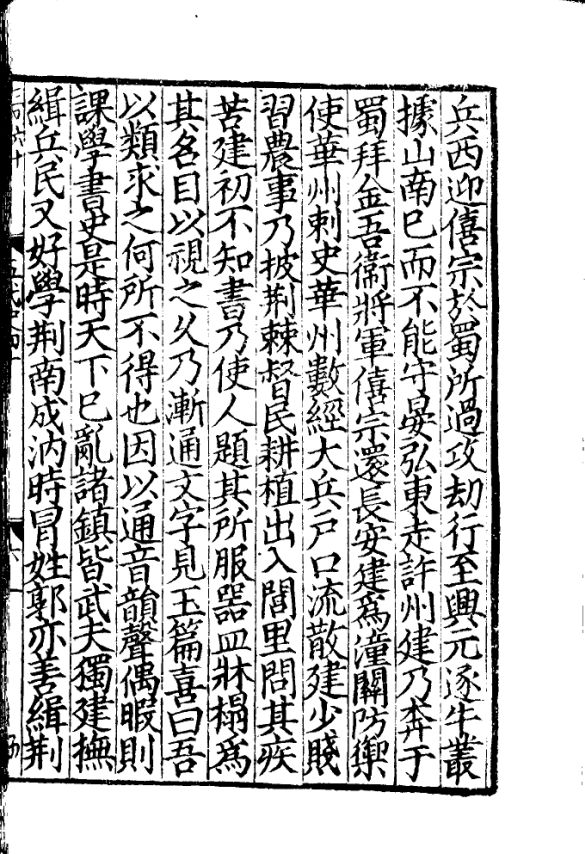 兵西迎僖宗於蜀所過攻劫行至興元逐牛叢
據山南已而不能守晏弘東走許州建乃奔于
蜀拜金吾衞將軍僖宗還長安建爲潼關防禦
使華州刺史華州數經大兵戶口流散建少賤
習農事乃披荆棘督民耕植出入閭里問其疾
苦建初不知書乃使人題其所服器皿牀榻爲
其名目以視之久乃漸通文字見玉篇喜曰吾
以類求之何所不得也因以通音韻聲偶暇則
課學書史是時天下已亂諸鎮皆武夫獨建撫
緝兵民又好學荆南成汭時冒姓郭亦善緝荆